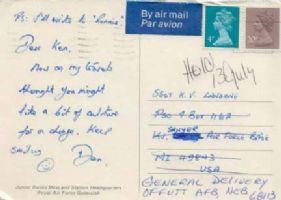 Ps: I'll write to 'Ronnie'.
Dear Ken,
Now on my travels
thought you might
like a bit of culture
for a change. Keep
smiling
Dan.
Junior Ranks Mess and Station Headquarters
Royal Air Force
By air mail
Par avion
4P
20P
Hold
13 July
SGT K.V.
PSC 4 Box
SAWYER AIR FORCE BASE
MI 49843
USA
GENERAL DELIVERY
OFFUTT AFB, NEB
68113